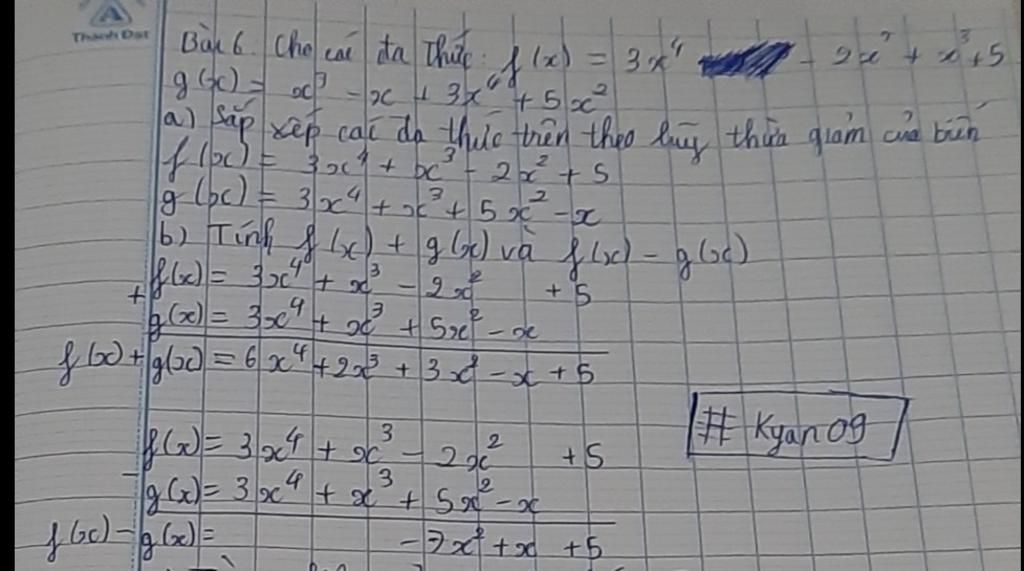 Thành Đạt
Bài 6. Cho các đa thức: f(x) = 3x⁴ - 2x² + x³ + 5
g(x) = x³ - x + 3x⁴ + 5x²
a) Sắp xếp các đa thức trên theo lũy thừa giảm của biến
f(x) = 3x⁴ + x³ - 2x² + 5
g(x) = 3x⁴ + x³ + 5x² - x
b) Tính f(x) + g(x) và f(x) - g(x)
f(x) = 3x⁴ + x³ - 2x² + 5
+
g(x) = 3x⁴ + x³ + 5x² - x
f(x) + g(x) = 6x⁴ + 2x³ + 3x² - x + 5
# Kyan09
f(x) = 3x⁴ + x³ - 2x² + 5
-
g(x) = 3x⁴ + x³ + 5x² - x
f(x) - g(x) = -7x² + x + 5